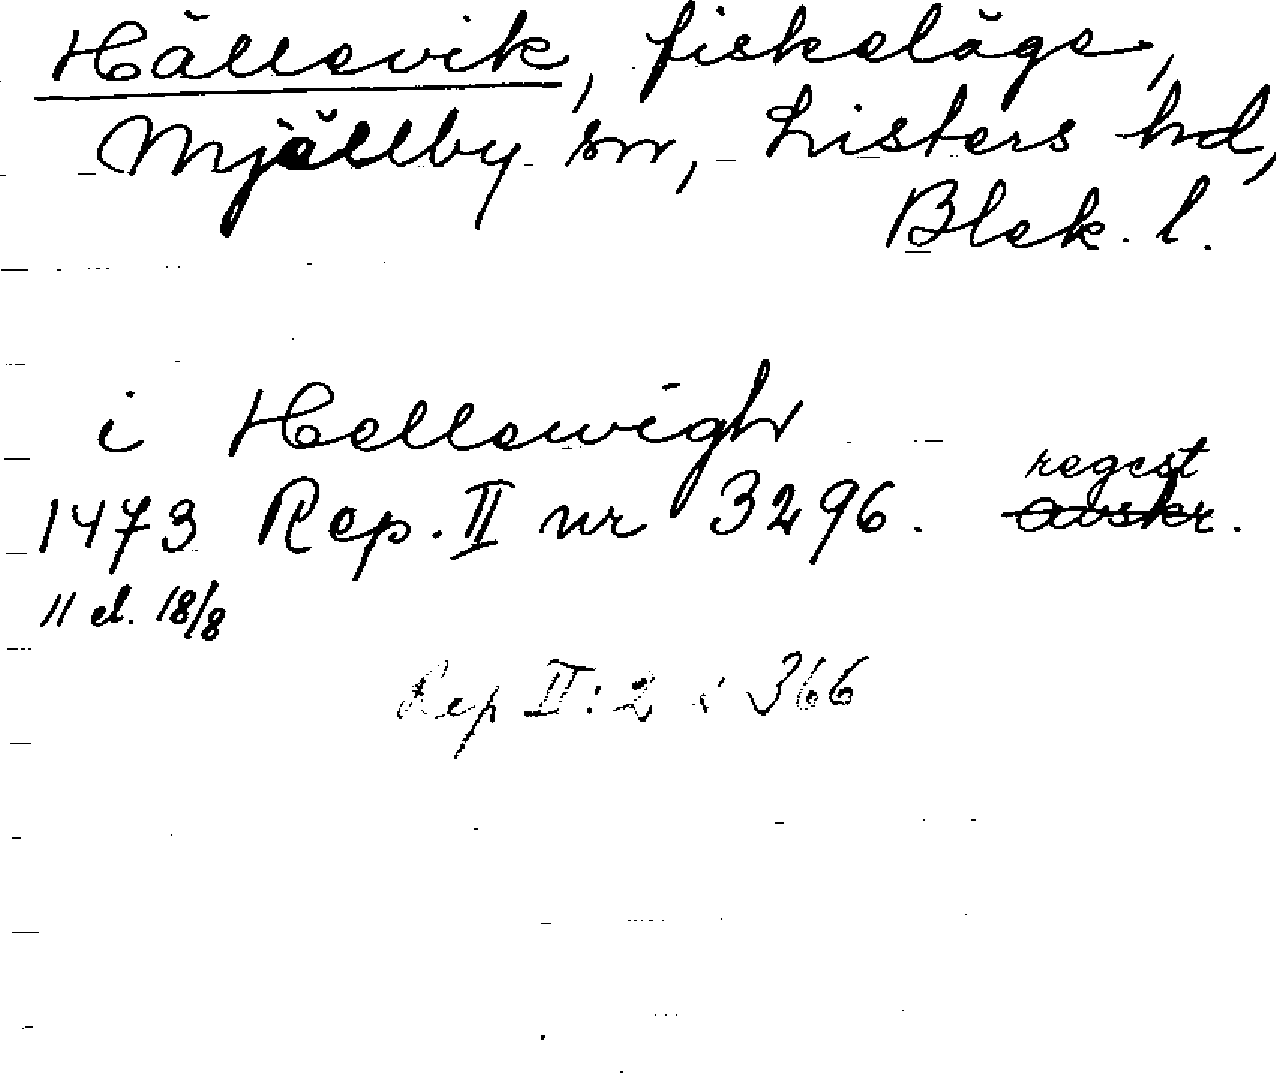 Hällevik, fiskeläge,
Mjällby sn, Listers hd,
Blek. l.
i Hellewigh
regest
1473 Rep. II nr 3296. avskr.
11 el. 18/8
Rep II:2 s 366